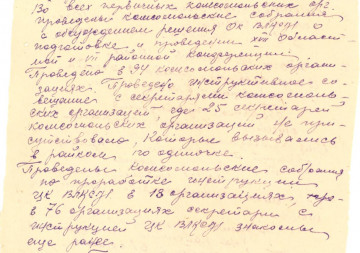 Во всех первичных комсомольских орг.
проведены комсомольские собрания
с обсуждением решения Ок ВЛКСМ о
подготовке и проведении XIII Област-
ной и VII районной конференции
Проведено в 94 комсомольских органи-
зациях. Проведено инструктивное со-
вещание с секретарями комсомоль-
ских организаций, где 25 секретарей
комсомольских организаций не при-
сутствовало, которые вызывались
в райком по одиночке.
Проведены комсомольские собрания
по проработке инструкции
ЦК ВЛКСМ в 18 организациях,
в 76 организациях секретари с
инструкцией ЦК ВЛКСМ знакомы
еще ранее.